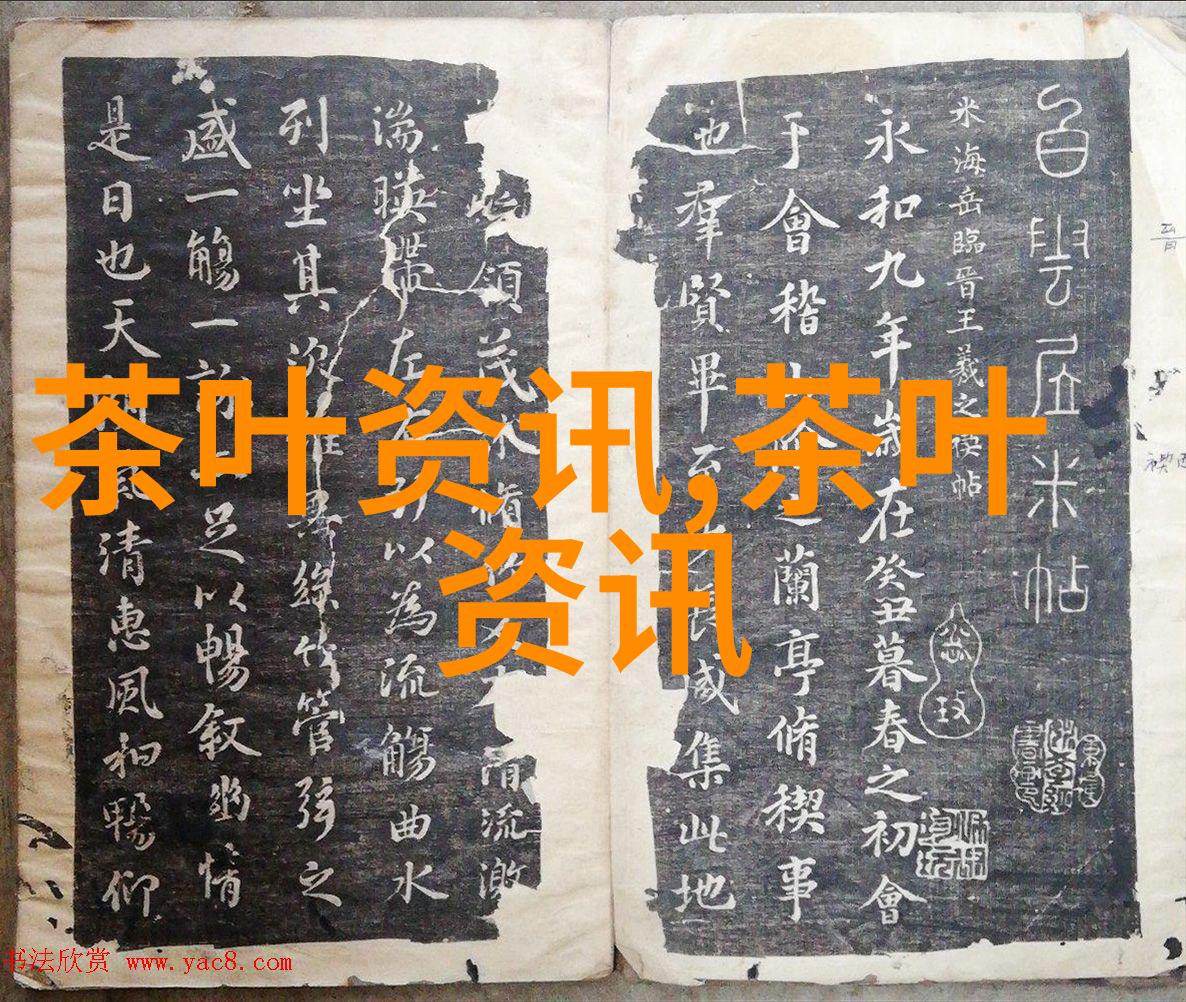 白雲居米帖
米海岳臨晉王羲之禊帖
永和九年歲在癸丑暮春之初會
于會稽山陰之蘭亭脩稧事
也羣賢畢至少長咸集此地
領茂水脩竹又有清流激
湍暎帶左右引以為流觴曲水
列坐其次雖無絲竹管弦之
盛一觴一詠足以暢敘幽情
是日也天清惠風和暢仰
茶叶资讯,茶叶
资讯
书法欣赏 www.yac8.com